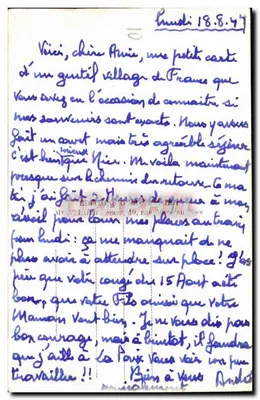 Lundi 18.8.47
Voici, chère Amie, une petite carte
d'un gentil village de France que
vous avez eu l'occasion de connaitre si
mes souvenirs sont exacts. Nous y avons
fait un court mais très agréable séjour
c'est mieux que Nice. Me voila maintenant
presque sur le chemin du retour. Ce ma
tin j'ai fait 2 heures de queue à mon
réveil pour louer mes places au train
pour lundi : ça me manquait de ne
plus avoir à attendre sur place ! J'es
père que votre congé du 15 Août a été
bon, que votre Fils ainsi que votre
Maman vont bien. Je ne vous dis pas
bon courage, mais à bientot, il faudra
que j'aille à la Paix vous voir un peu
travailler !! Bien à vous
amicalement André